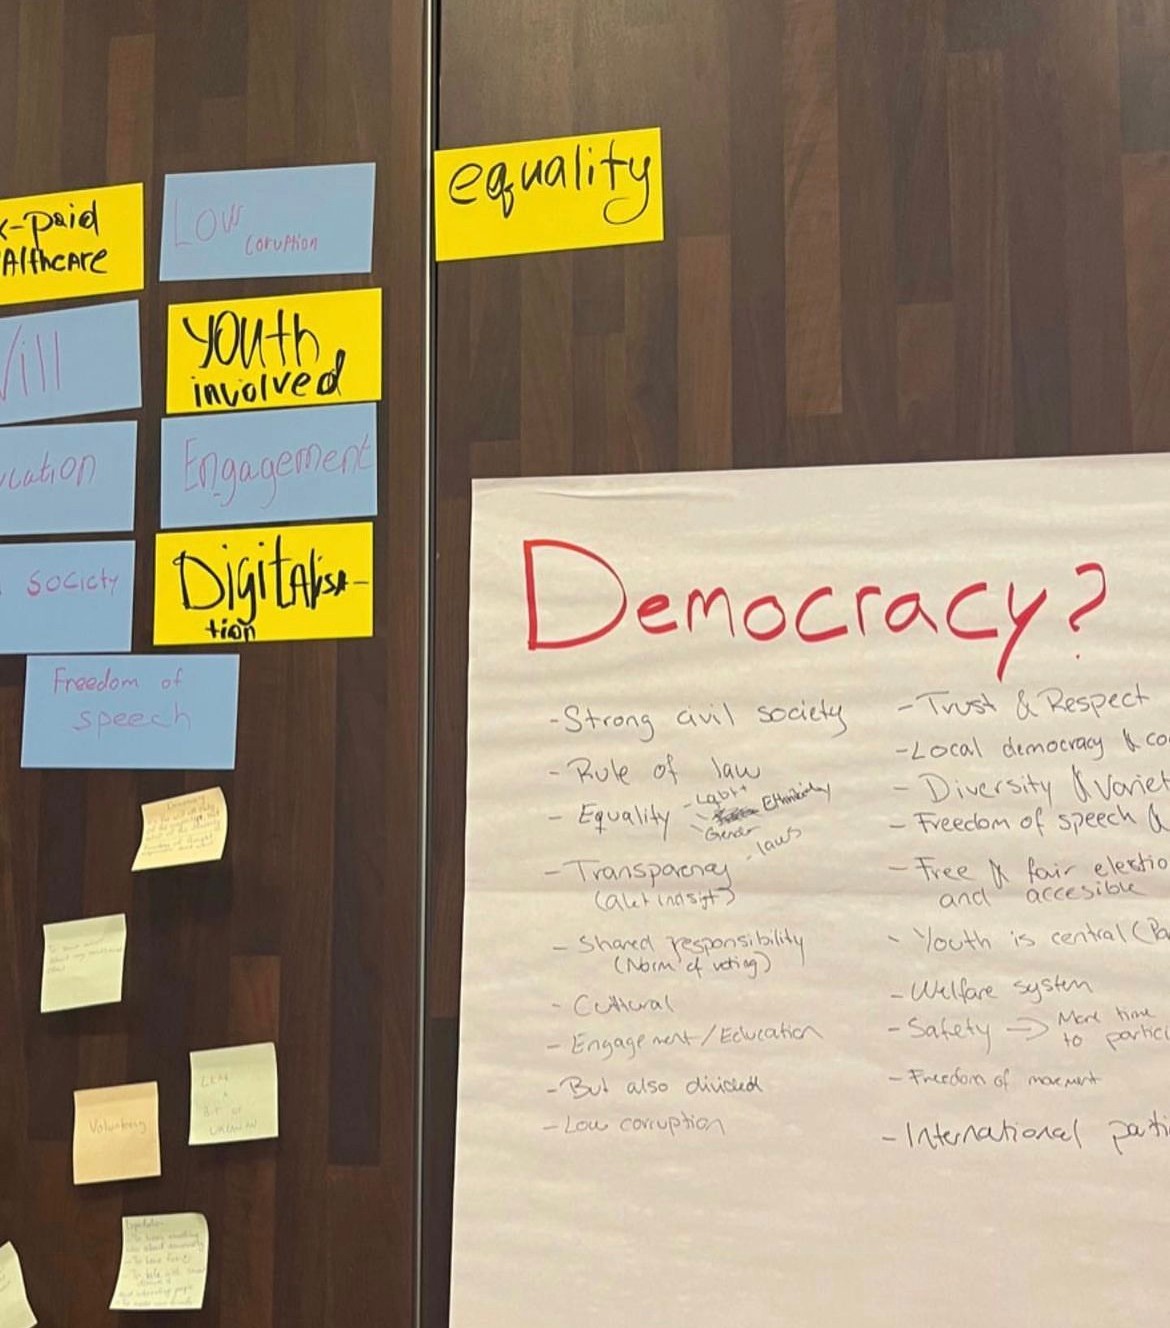 equality
-paid
Althcare
Low
Coruption
ill
Youth
involved
cation
Engagement
Society
Digitalisa-
tion
Freedom of
speech
Voluntering
Democracy?
- Strong civil society
- Rule of law
- Equality - Lgbt+
Ethnicity
Gender
- laws
- Transparency
- Shared responsibility
(Norm of voting)
- Cultural
- Engagement/Education
- But also divided
- Low corruption
- Trust & Respect
- Local democracy & co
- Diversity & Variet
- Freedom of speech &
- Free & fair electio
and accesible
- Youth is central (Pa
- Welfare system
- Safety → More time
to partici
- Freedom of movement
- International parti